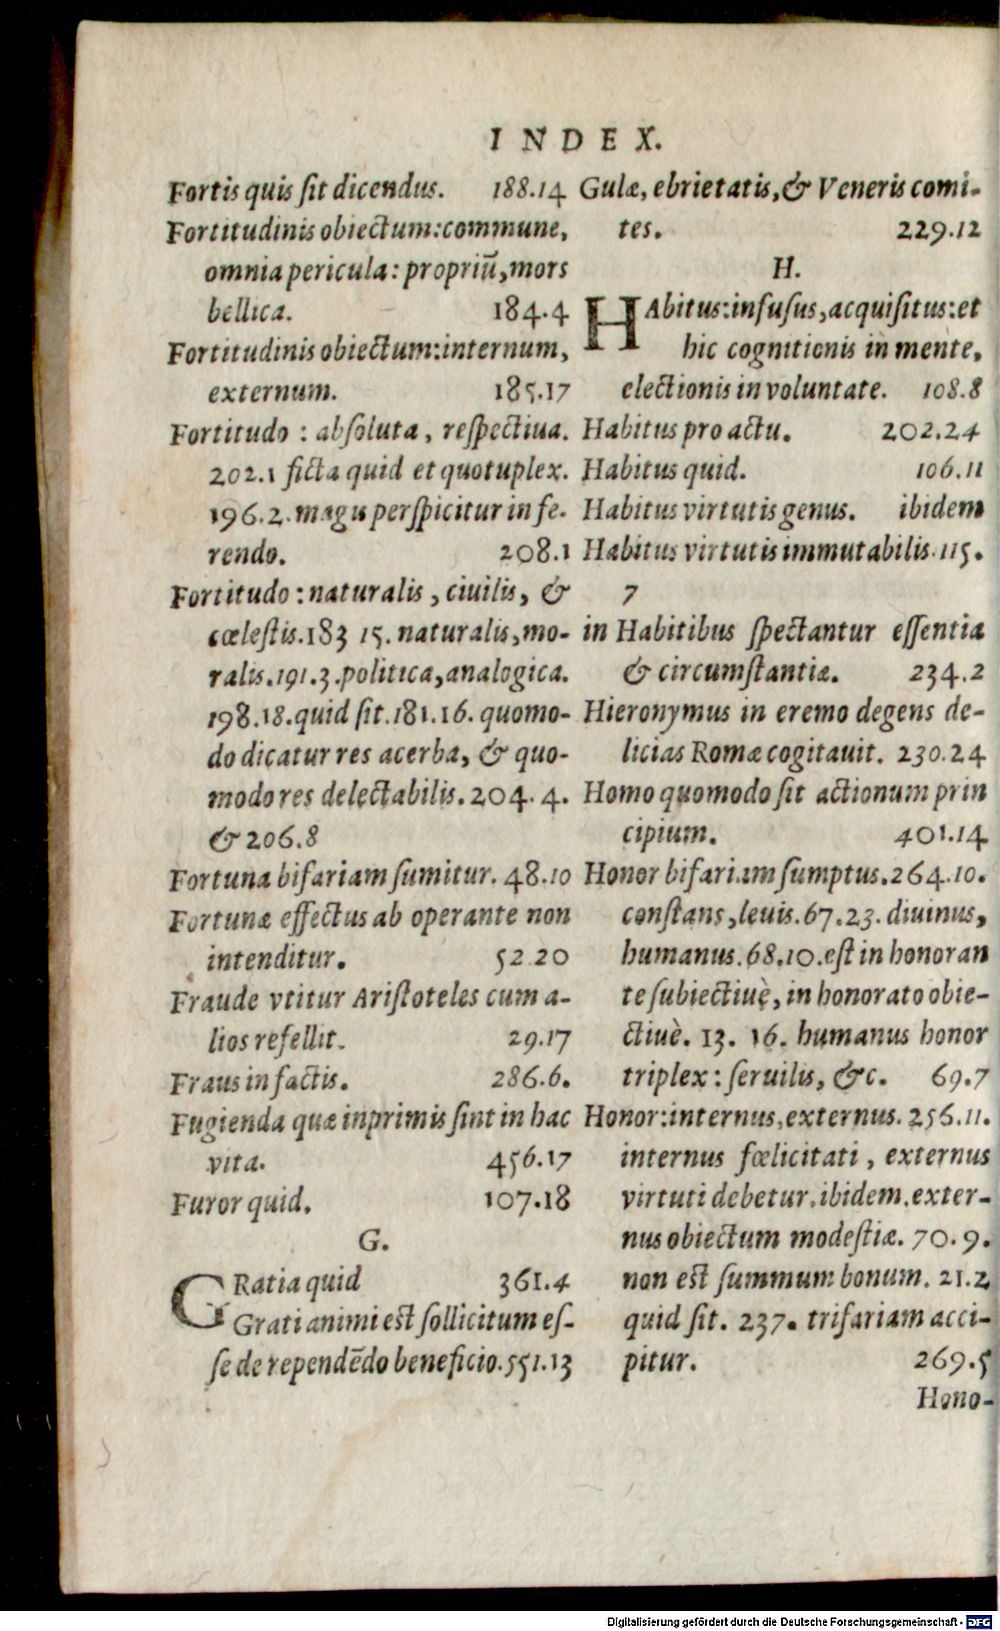 INDEX.
Fortis quis ſit dicendus. 188.14
Fortitudinis obiectum: commune,
omnia pericula: propriũ, mors
bellica. 184.4
Fortitudinis obiectum: internum,
externum. 185.17
Fortitudo : abſoluta , reſpectiua.
202.1 ficta quid et quotuplex.
196.2. magis perſpicitur in fe-
rendo. 208.1
Fortitudo : naturalis , ciuilis, &
cœleſtis. 183 15. naturalis, mo-
ralis. 191.3. politica, analogica.
198.18. quid ſit. 181.16. quomo-
do dicatur res acerba, & quo-
modo res delectabilis. 204. 4.
& 206.8
Fortuna bifariam ſumitur. 48.10
Fortunæ effectus ab operante non
intenditur. 52.20
Fraude vtitur Ariſtoteles cum a-
lios refellit. 29.17
Fraus in factis. 286.6.
Fugienda quæ inprimis ſint in hac
vita. 456.17
Furor quid. 107.18
G.
GRatia quid 361.4
Grati animi est ſollicitum eſ-
ſe de rependẽdo beneficio. 551.13
Gulæ, ebrietatis, & Veneris comi-
tes. 229.12
H.
HAbitus: infuſus, acquiſitus: et
hic cognitionis in mente,
electionis in voluntate. 108.8
Habitus pro actu. 202.24
Habitus quid. 106.11
Habitus virtutis genus. ibidem
Habitus virtutis immutabilis. 115.
7
in Habitibus ſpectantur eſſentia
& circumſtantiæ. 234.2
Hieronymus in eremo degens de-
licias Romæ cogitauit. 230.24
Homo quomodo ſit actionum prin
cipium. 401.14
Honor bifariam ſumptus. 264.10.
conſtans, leuis. 67.23. diuinus,
humanus. 68.10. eſt in honoran
te ſubiectiuè, in honorato obie-
ctiuè. 13. 16. humanus honor
triplex : ſeruilis, &c. 69.7
Honor: internus, externus. 256.11.
internus fœlicitati , externus
virtuti debetur. ibidem. exter-
nus obiectum modeſtiæ. 70. 9.
non est ſummum bonum. 21.2
quid ſit. 237. trifariam acci-
pitur. 269.5
Hono-
Digitalisierung gefördert durch die Deutsche Forschungsgemeinschaft - DFG